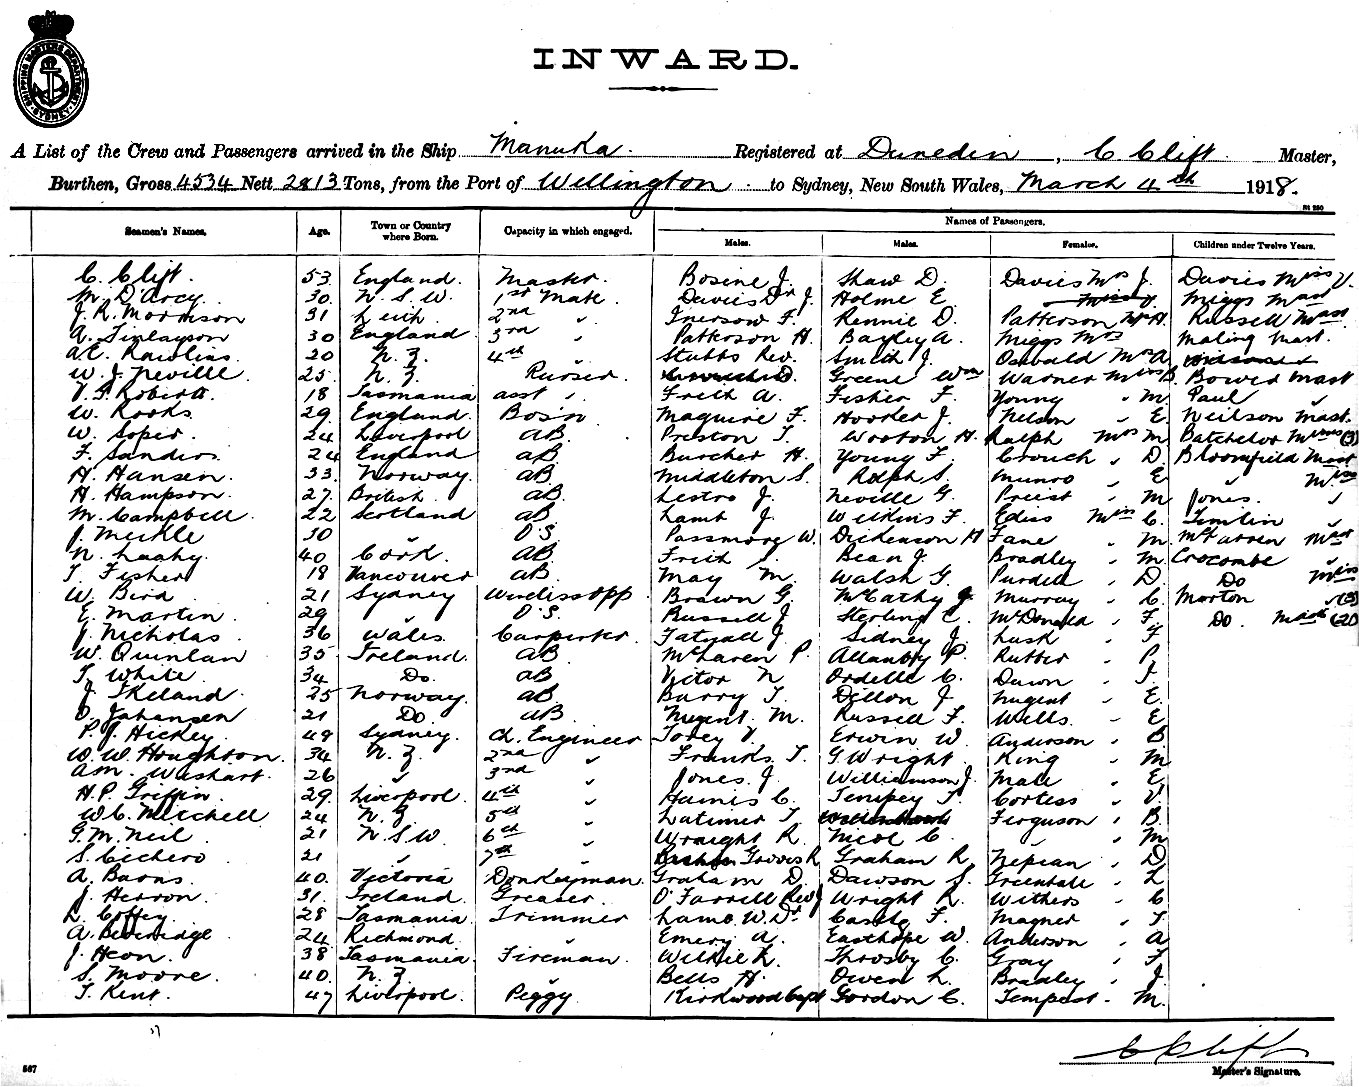 SHIPPING MASTERS DEPARTMENT SYDNEY
INWARD.
A List of the Crew and Passengers arrived in the Ship Manuka. Registered at Dunedin, C Clift Master,
Burthen, Gross 4534 Nett 2813 Tons, from the Port of Wellington to Sydney, New South Wales, March 4th 1918.
Seamen's Names. Age. Town or Country where Born. Capacity in which engaged. Names of Passengers.
Males. Males. Females. Children under Twelve Years.
C. Clift. 53 England Master. Bosine J. Shaw D. Davies Mrs J. Davies Miss V.
M. D'Arcy. 30. N.S.W. 1st Mate Davies Dr J. Holme E. Miss V. Miggs Mast
J. R. Morrison 31 Leith 2nd " Inersow F. Rennie D. Patterson Mrs H. Russell Mast.
A. Finlayson 30 England 3rd " Patterson H. Bayley A. Miggs Mrs Maling Mast.
A.C. Rawlins. 20 N.Z. 4th " Stubbs Rev. Smith J. Oswald Mrs A
W. J. Neville. 25 N.Z. Purser. Greene Wm Warner Miss B. Bower Mast
V. F. Roberts. 18 Tasmania asst ". Freth A. Fisher F. Young " M Paul "
W. Rooks. 29 England. Bos'n Maguire F. Hooker J. Nelson " E. Neilson Mast.
W. Soper. 24 Liverpool AB. Preston T. Wooton H. Ralph Mrs M Batchelor Misses (3)
F. Sanders. 24 England AB. Burcher H. Young F. Crouch " D. Bloomfield Mast
H. Hansen. 33. Norway. AB. Middleton S. Rolph S. Munro " E " Miss
H. Hampson. 27. British. AB. Lestro J. Neville G. Preist " M Jones. "
M. Campbell 22 Scotland AB. Lamb J. Wilkins F. Ediss Miss C. Timlin "
J. Meikle 30 " O.S. Passmore W. Dickenson H Fane " M. McLarren Mast
N. Leahy. 40 Cork. AB. Freth S. Bean J. Bradley " M. Crocombe "
T. Fisher 18 Vancouver AB. May M. Walsh G. Purdell " D. Do Miss
W. Bird. 21 Sydney Windlss Opp. Brown G. McCathy J. Murray " C. Morton " (3)
E. Martin. 29 " O.S. Russell J Sterling C. McDonald " F. Do. Mast (2)
J. Nicholas. 36 Wales. Carpenter. Tatnall J. Sidney J. Lusk " F
W. Quinlan 35 Ireland. AB. McLaren P. Allanby P. Rutter " P.
T. White. 34 Do. AB Victor N Ordelle C. Dawn " J.
J. Ireland. 25 Norway. AB Barry T. Dillon J. Nugent " E.
O. Johansen 21 Do. AB. Nugent. M. Russell F. Wells. " E
P. J. Hickey. 49 Sydney. Ch. Engineer Tovey V. Erwin W. Anderson " B
W. W. Houghton. 34 N.Z. 2nd " Franks T. G. Wright. King " M
A.M. Wishart. 26 " 3rd " Jones. J. Williamson J. Male " E.
H. P. Griffin. 29. Liverpool. 4th " Haines C. Tempey T. Cortess " V.
W. C. Mitchell 24 N.Z. 5th " Latimer T Ferguson " B.
G. M. Neil 21 N.S.W. 6th " Wraight R. Nicol C. " " M
S. Cichero 21 " 7th " Groves R Graham R. Nepean " D
A. Barns. 40. Victoria Donkeyman. Graham D. Dawson S. Greendale " L
J. Herron. 31. Ireland. Greaser. O'Farrell Rev J Wright R. Withers " C
L. Coffey. 28 Tasmania. Trimmer Lamb W. Dr. Castle F. Magner " T
A. Beveridge 24 Richmond. " Emery A. Easthope W. Anderson " A
J. Heon. 38 Tasmania Fireman. Wilkie L. Throsby C. Gray " F
S. Moore. 40. N.Z. " Bells H. Owen L. Bradley " J.
T. Kent. 47 Liverpool. Peggy. Kirkwood Capt Gordon C. Tempest " M.
C Clift
Master's Signature.
567